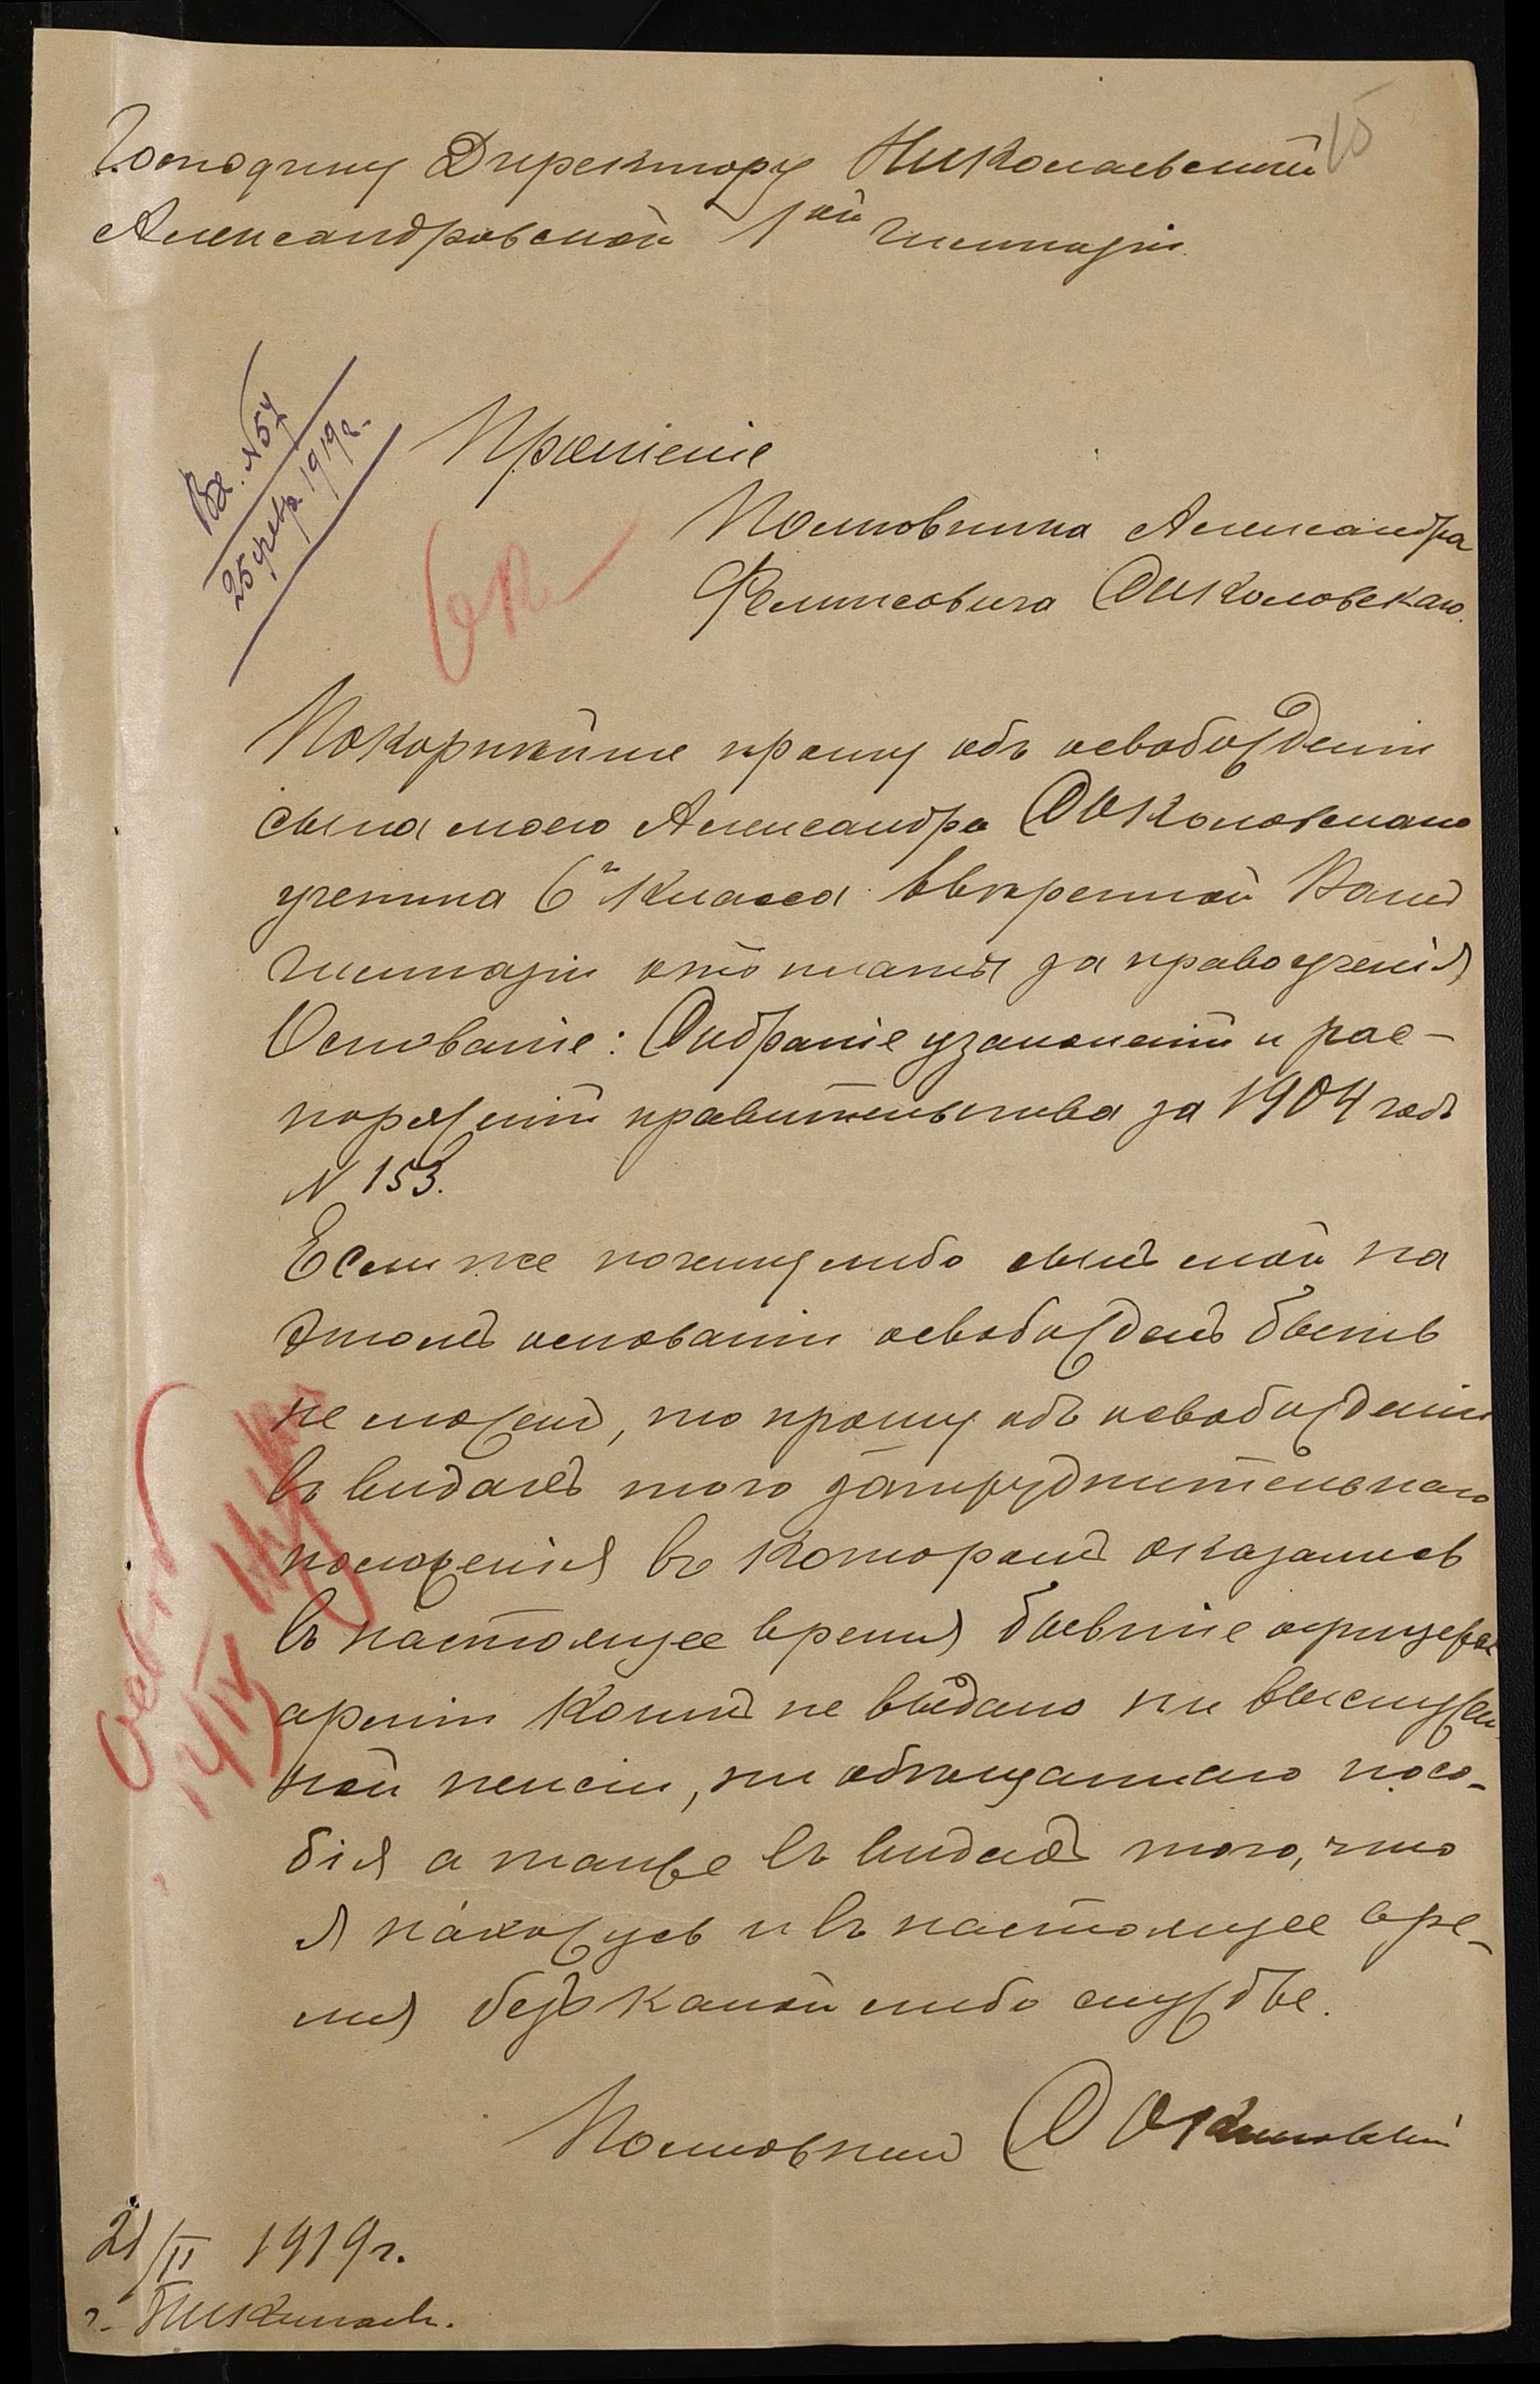 15
Господину Директору Николаевской
Александровской 1ой Гимназіи.
Вх. № 57
25 февр. 1919 г.
Прошеніе
6 кл
Полковника Александра
Феликсовича Соколовскаго.
Покорнѣйше прошу объ освобожденіи
сына моего Александра Соколовскаго
ученика 6го класса ввѣренной Вамъ
Гимназіи отъ платы за правоученія
Основаніе: Собраніе узаконеній и рас-
поряженій правительства за 1904 годъ
№ 153.
Если же почему либо сынъ мой на
этомъ основаніи освобожденъ быть
не можетъ, то прошу объ освобожденіи
въ видахъ того затруднительнаго
положенія въ которомъ оказались
въ настоящее время бывшіе офицеры
арміи коимъ не выдано ни выслужен-
ной пенсіи, ни обѣщаннаго посо-
бія а также въ видахъ того, что
я нахожусь и въ настоящее вре-
мя безъ какой либо службы.
Полковникъ Соколовскій
21/II 1919 г.
г. Николаевъ.